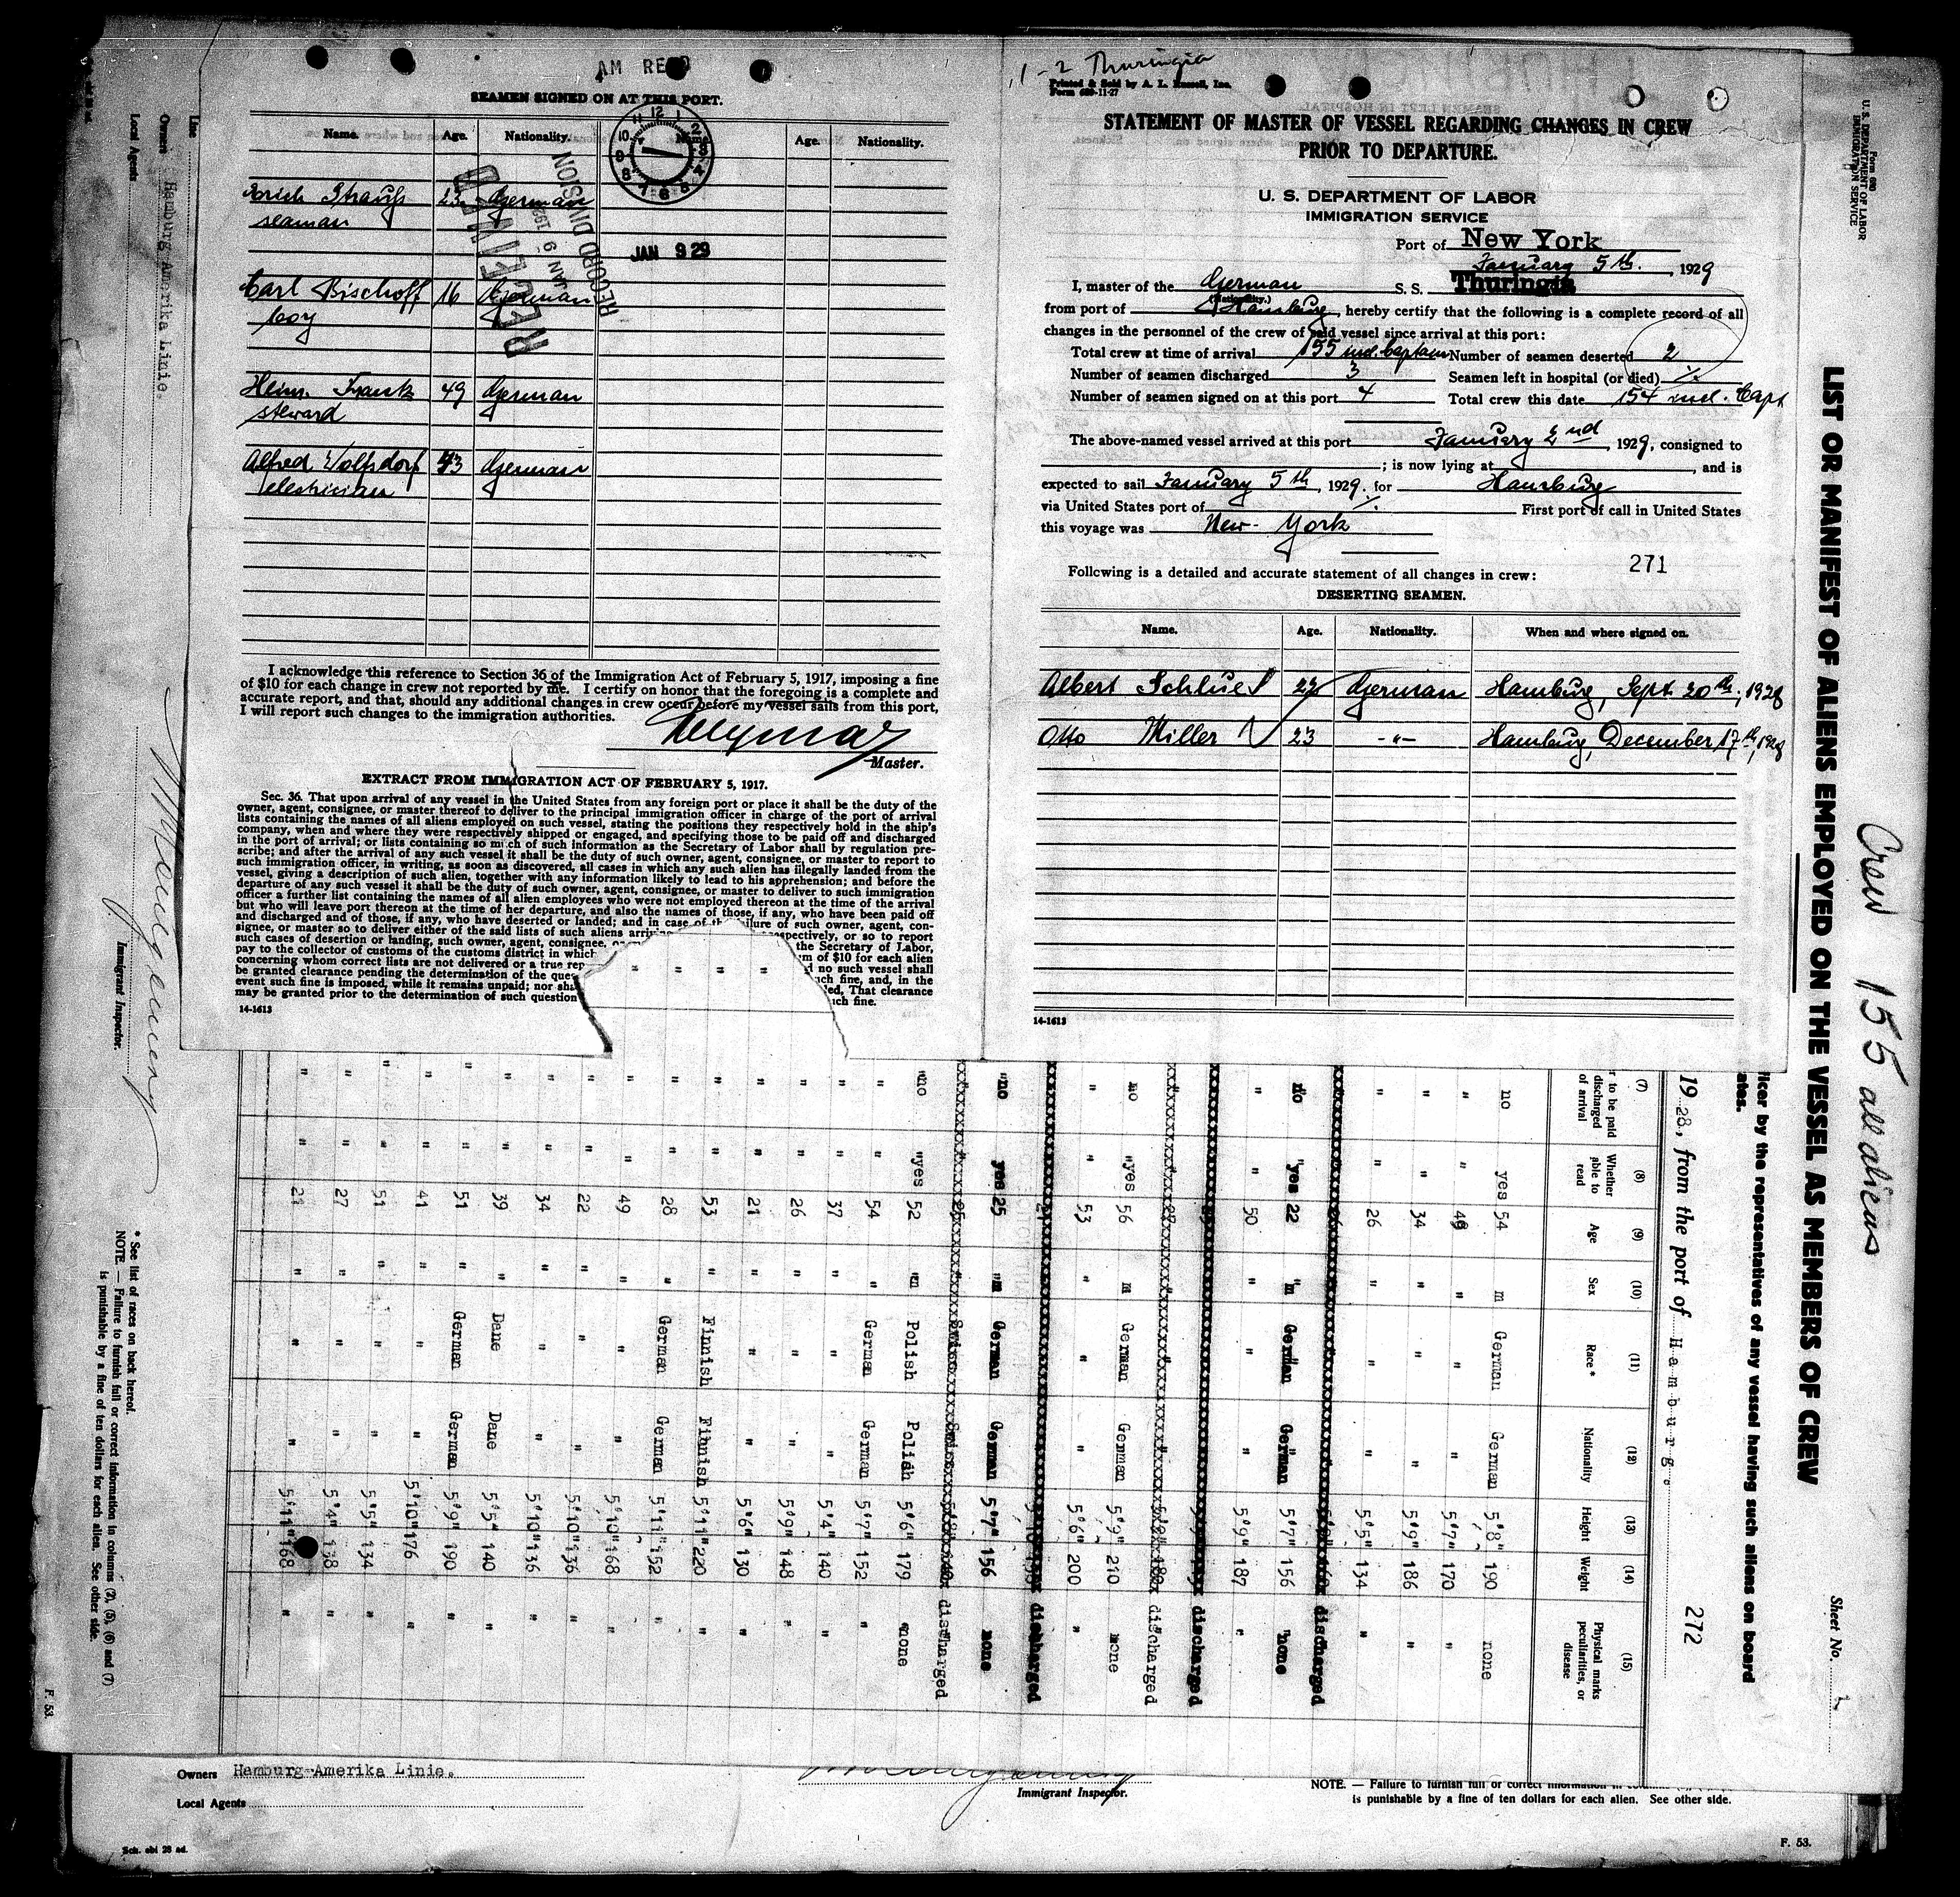 AM REC'D
SEAMEN SIGNED ON AT THIS PORT.
Name. Age. Nationality. Age. Nationality.
Strauss 23 German
seaman
JAN 9 29
RECEIVED
JAN 9 192
RECORD DIVISION
Carl Bischoff 16 German
boy
Heinr. Frantz 49 German
steward
Alfred Wolfsdorf German
electrician
I acknowledge this reference to Section 36 of the Immigration Act of February 5, 1917, imposing a fine
of $10 for each change in crew not reported by me. I certify on honor that the foregoing is a complete and
accurate report, and that, should any additional changes in crew occur before my vessel sails from this port,
I will report such changes to the immigration authorities.
Master.
EXTRACT FROM IMMIGRATION ACT OF FEBRUARY 5, 1917.
Sec. 36. That upon arrival of any vessel in the United States from any foreign port or place it shall be the duty of the
owner, agent, consignee, or master thereof to deliver to the principal immigration officer in charge of the port of arrival
lists containing the names of all aliens employed on such vessel, stating the positions they respectively hold in the ship's
company, when and where they were respectively shipped or engaged, and specifying those to be paid off and discharged
in the port of arrival; or lists containing so much of such information as the Secretary of Labor shall by regulation pre-
scribe; and after the arrival of any such vessel it shall be the duty of such owner, agent, consignee, or master to report to
such immigration officer, in writing, as soon as discovered, all cases in which any such alien has illegally landed from the
vessel, giving a description of such alien, together with any information likely to lead to his apprehension; and before the
departure of any such vessel it shall be the duty of such owner, agent, consignee, or master to deliver to such immigration
officer a further list containing the names of all alien employees who were not employed thereon at the time of the arrival
but who will leave port thereon at the time of her departure, and also the names of those, if any, who have been paid off
and discharged and of those, if any, who have deserted or landed; and in case of the failure of such owner, agent, con-
signee, or master so to deliver either of the said lists of such aliens arriving spectively, or so to report
such cases of desertion or landing, such owner, agent, consignee, the Secretary of Labor,
pay to the collector of customs of the customs district in which m of $10 for each alien
concerning whom correct lists are not delivered or a true rep d no such vessel shall
be granted clearance pending the determination of the ques uch fine, and, in the
event such fine is imposed, while it remains unpaid; nor sha ded, That clearance
may be granted prior to the determination of such question uch fine.
14-1613
1-2 Thuringia
Printed & Sold by A. L. Russell, Inc.
STATEMENT OF MASTER OF VESSEL REGARDING CHANGES IN CREW
PRIOR TO DEPARTURE.
U. S. DEPARTMENT OF LABOR
IMMIGRATION SERVICE
Port of New York
January 5th., 1929
I, master of the German S. S. Thuringia
(Nationality.)
from port of Hamburg, hereby certify that the following is a complete record of all
changes in the personnel of the crew of said vessel since arrival at this port:
Total crew at time of arrival 155 incl. Captain Number of seamen deserted 2
Number of seamen discharged 3 Seamen left in hospital (or died) ./.
Number of seamen signed on at this port 4 Total crew this date 154 incl. Capt
The above-named vessel arrived at this port January 2nd, 1929, consigned to
; is now lying at , and is
expected to sail January 5th, 1929. for Hamburg
via United States port of ./. First port of call in United States
this voyage was New-York
271
Following is a detailed and accurate statement of all changes in crew:
DESERTING SEAMEN.
Name. Age. Nationality. When and where signed on.
Albert German Hamburg, Sept. 20th, 1928
Otto Miller 23 -"- Hamburg, December 17th, 1928
14-1613
Form 680
U. S. DEPARTMENT OF LABOR
IMMIGRATION SERVICE
LIST OR MANIFEST OF ALIENS EMPLOYED ON THE VESSEL AS MEMBERS OF CREW
Crew 155 all aliens
Sheet No.
ficer by the representatives of any vessel having such aliens on board
ates.
1928, from the port of Hamburg.
272
(7) (8) (9) (10) (11) (12) (13) (14) (15)
r to be paid discharged of arrival
Whether able to read
Age
Sex
Race *
Nationality
Height
Weight
Physical marks peculiarities, or disease
no yes 54 m German German 5'8" 190 none
" " 49 " " " 5'7" 170 "
" " 34 " " " 5'9" 186 "
" " 26 " " " 5'5" 134 "
discharged
no yes 22 m German German 5'7" 156 none
" " 50 " " " 5'9" 187 "
discharged
discharged
no yes 56 m German German 5'9" 210 none
" " 53 " " " 5'6" 200 "
discharged
no yes 25 m German German 5'7" 156 none
discharged
no yes 52 m Polish Polish 5'6" 179 none
" " 54 " German German 5'7" 152 "
" " 37 " " " 5'4" 140 "
" " 26 " " " 5'9" 148 "
" " 21 " " " 5'6" 130 "
" " 53 " Finnish Finnish 5'11" 220 "
" " 28 " German German 5'11" 152 "
" " 49 " " " 5'10" 168 "
" " 22 " " " 5'10" 136 "
" " 34 " " " 5'10" 136 "
" " 39 " Dane Dane 5'5" 140 "
" " 51 " German German 5'9" 190 "
" " 41 " " " 5'10" 176 "
" " 51 " " " 5'5" 134 "
" " 27 " " " 5'4" 138 "
" " 21 " " " 5'11" 168 "
Line
Owners Hamburg-Amerika Linie.
Local Agents
Immigrant Inspector.
* See list of races on back hereof.
NOTE. — Failure to furnish full or correct information in columns (2), (5), (6) and (7)
is punishable by a fine of ten dollars for each alien. See other side.
F. 53.
Owners Hamburg-Amerika Linie.
Local Agents
Immigrant Inspector.
NOTE. — Failure to furnish full or correct information in
is punishable by a fine of ten dollars for each alien. See other side.
F. 53.